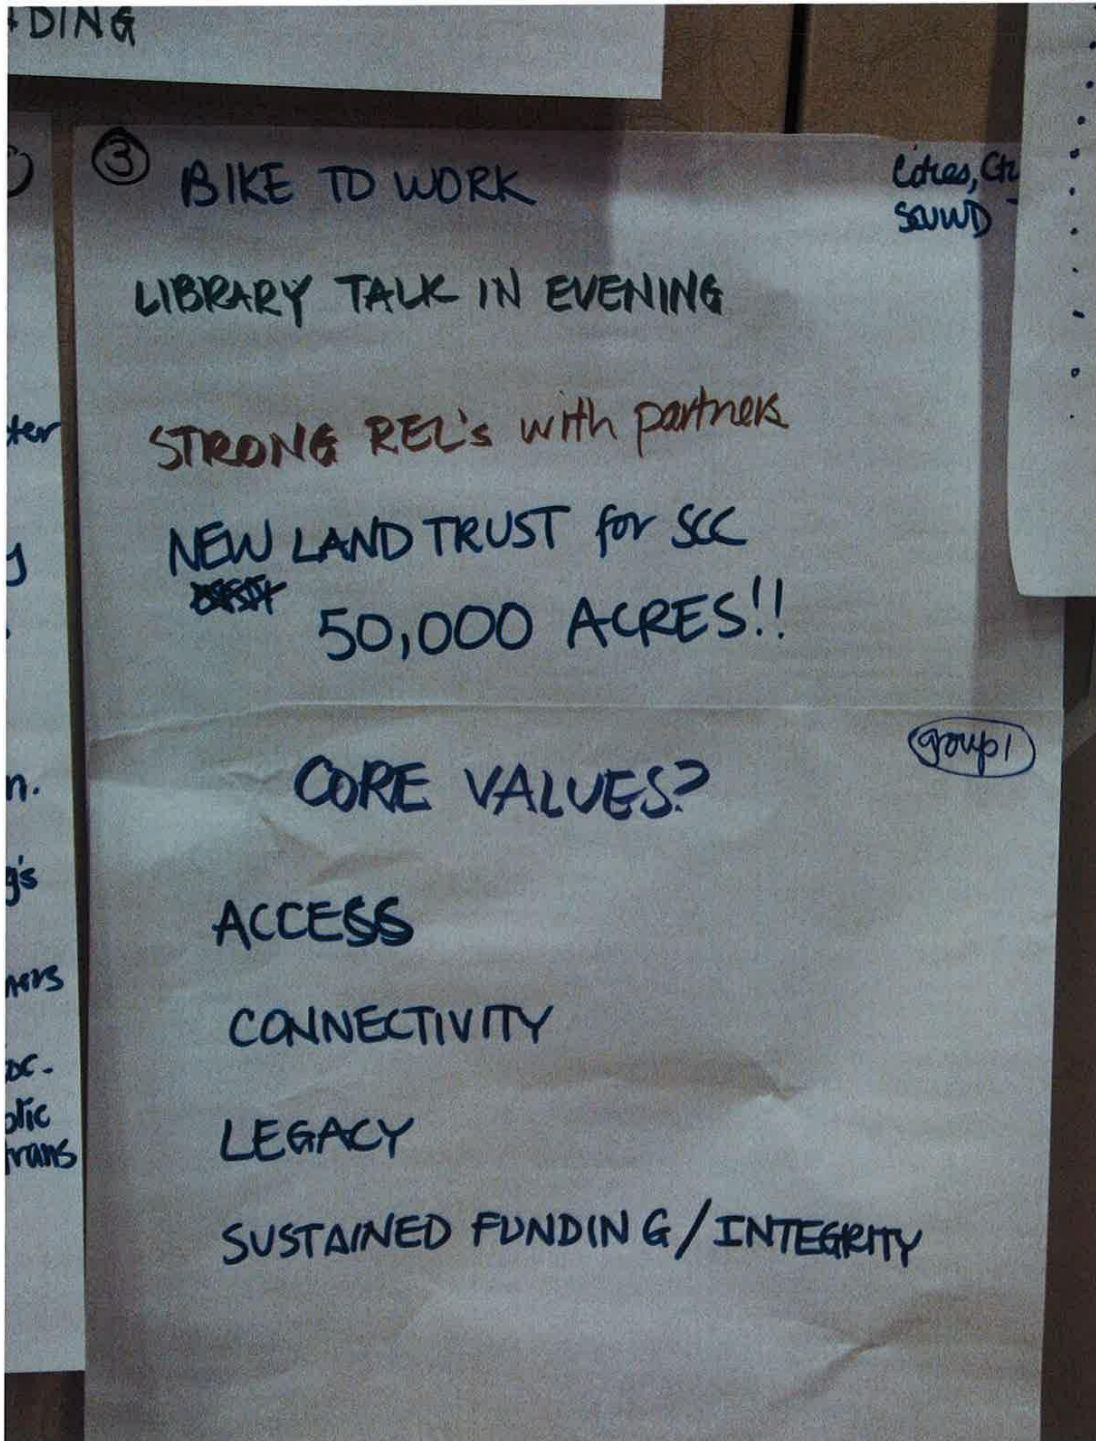 DING
③ BIKE TO WORK
SCVWD
LIBRARY TALK IN EVENING
STRONG REL's with partners
NEW LAND TRUST for SCC
50,000 ACRES!!
group 1
CORE VALUES?
ACCESS
CONNECTIVITY
LEGACY
SUSTAINED FUNDING/INTEGRITY
ter
y
n.
g's
ners
oc.
blic
trans